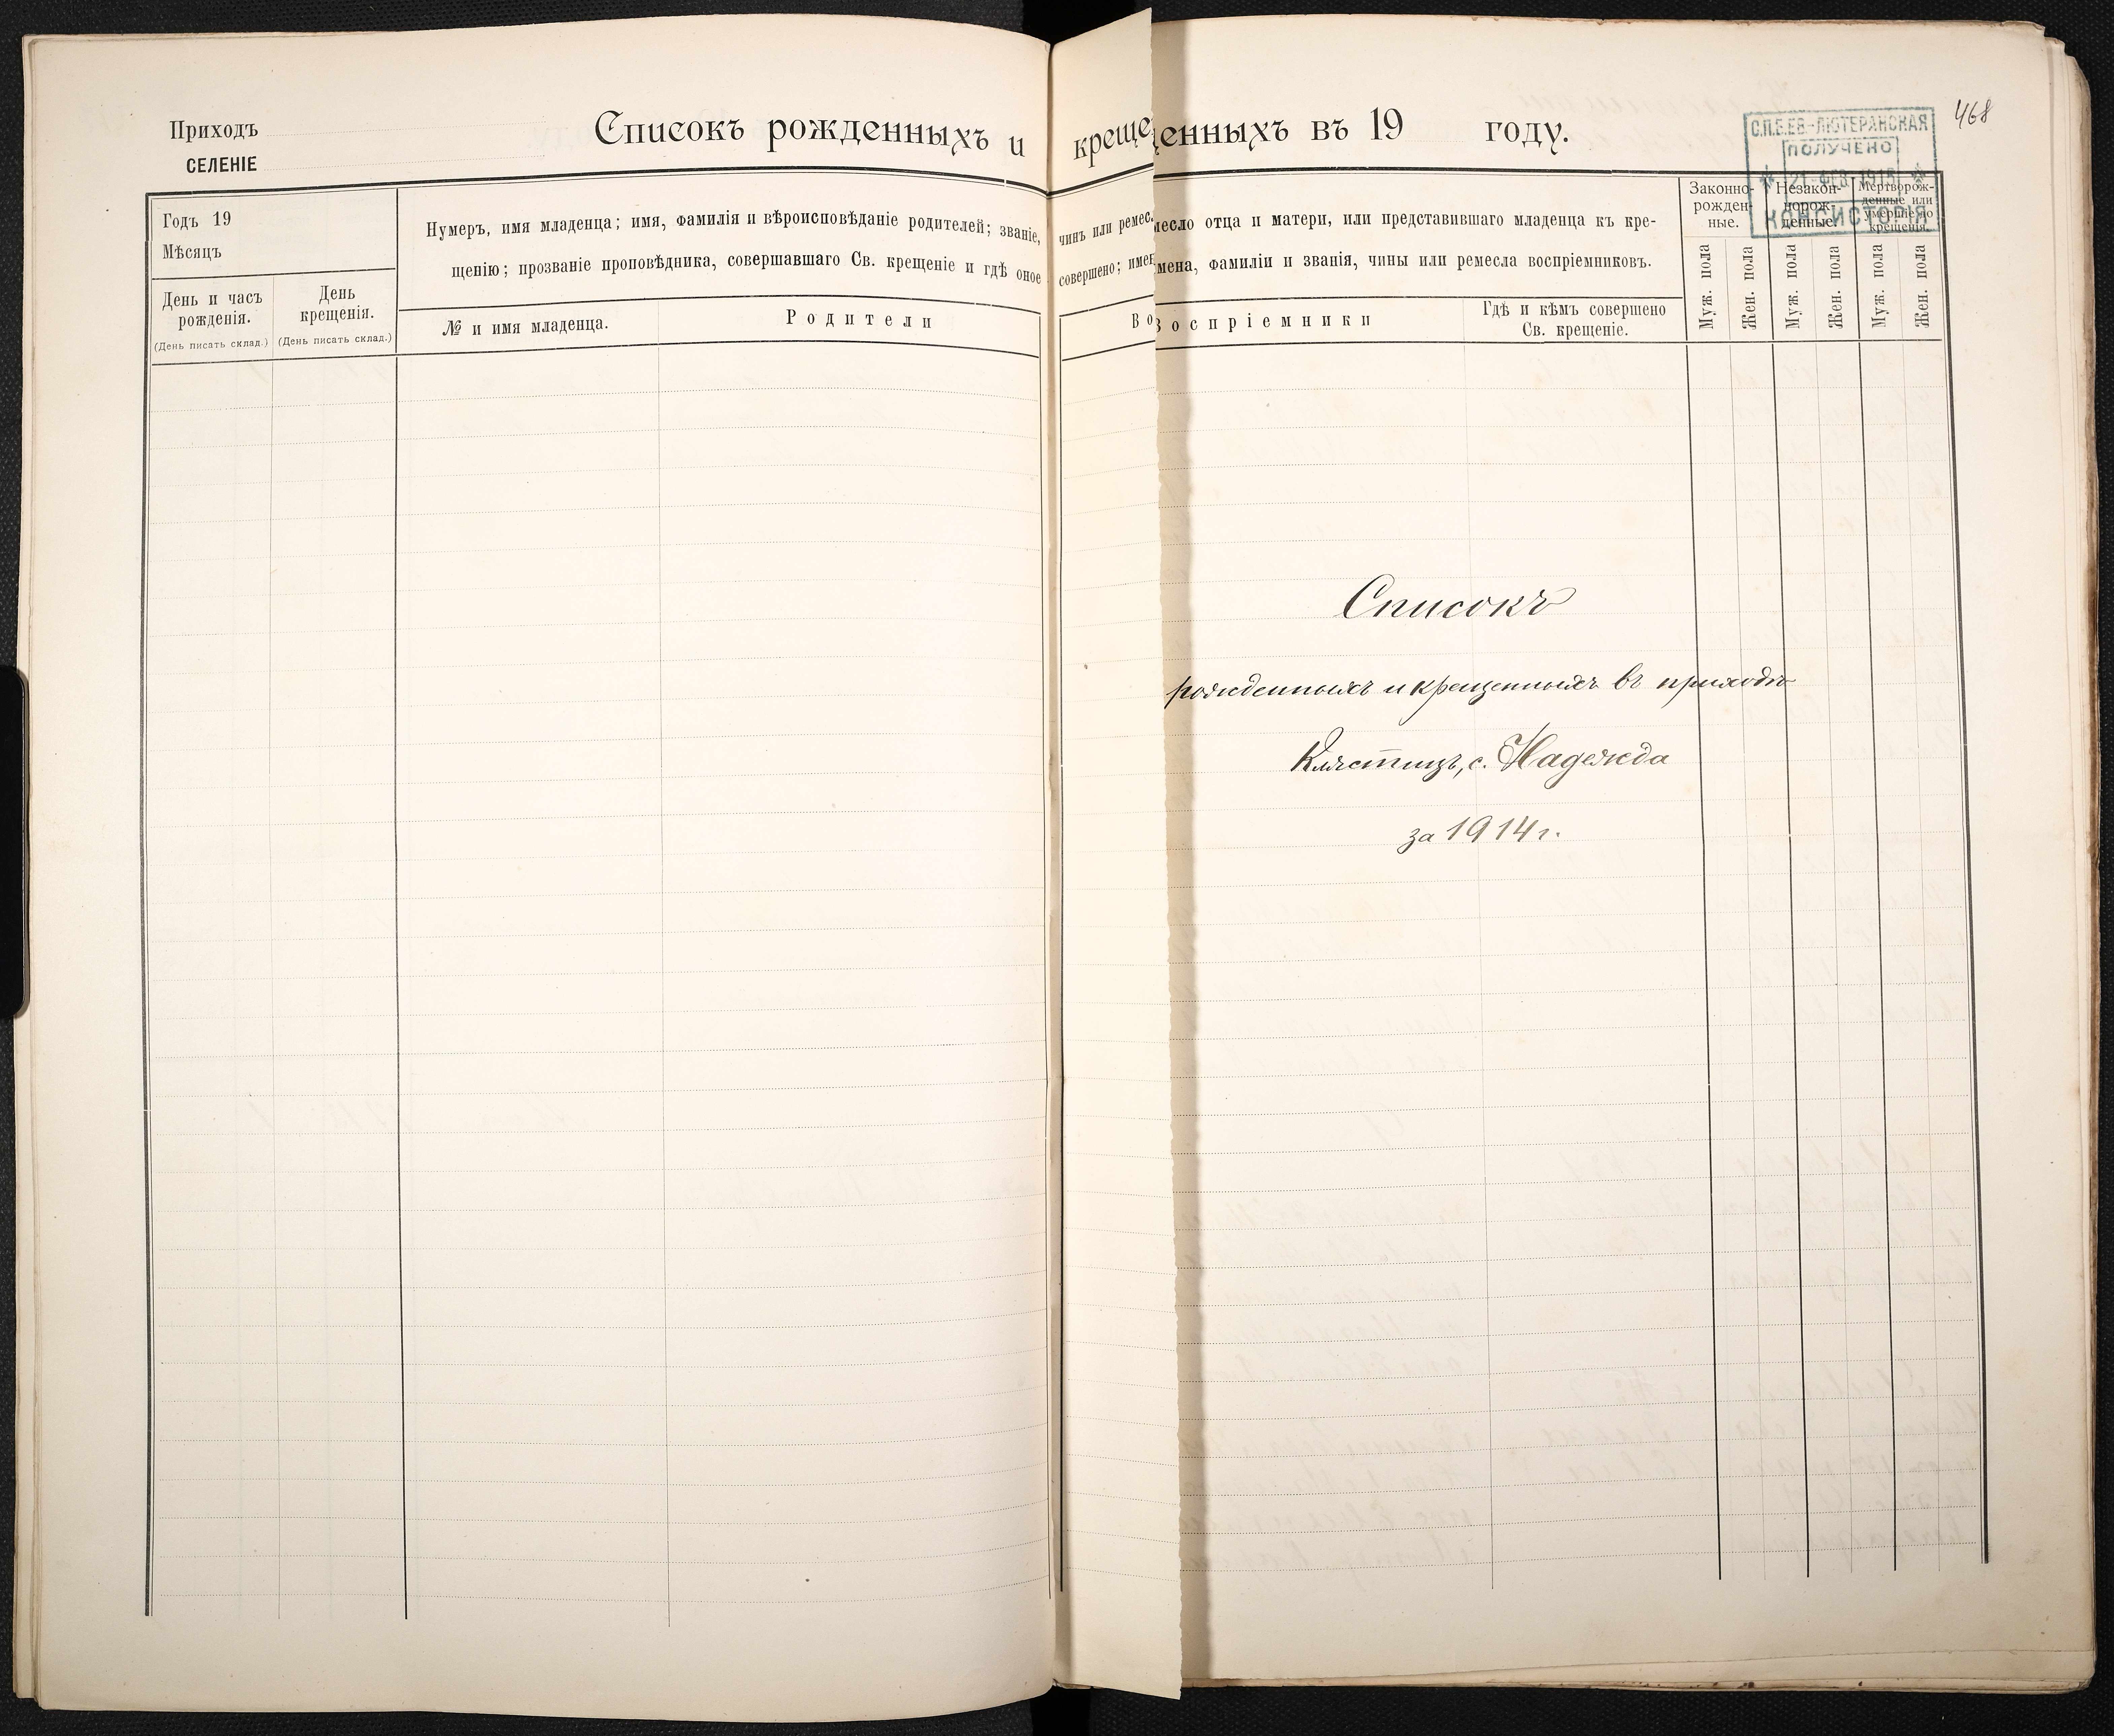 Приходъ
СЕЛЕНІЕ
Списокъ рожденныхъ и
Годъ 19
Мѣсяцъ
День и часъ рожденія.
(День писать склад.)
День крещенія.
(День писать склад.)
Нумеръ, имя младенца; имя, фамилія и вѣроисповѣданіе родителей; званіе,
щенію; прозваніе проповѣдника, совершавшаго Св. крещеніе и гдѣ оное
№ и имя младенца.
Родители
креще
чинъ или ремес
совершено; имен
Во
енныхъ въ 19 году.
468
С.П.Б.ЕВ.-ЛЮТЕРАНСКАЯ
ПОЛУЧЕНО
21 ФЕВ 1915
КОНСИСТОРІЯ
месло отца и матери, или представившаго младенца къ кре-
мена, фамиліи и званія, чины или ремесла воспріемниковъ.
оспріемники
Гдѣ и кѣмъ совершено
Св. крещеніе.
Законно-
рожден-
ные.
Незакон-
норож-
денные.
Мертворож-
денные или
умершіе до
крещенія.
Муж. пола
Жен. пола
Муж. пола
Жен. пола
Муж. пола
Жен. пола
Списокъ
рожденныхъ и крещенныхъ въ приходѣ
Клястицъ, с. Надежда
за 1914 г.